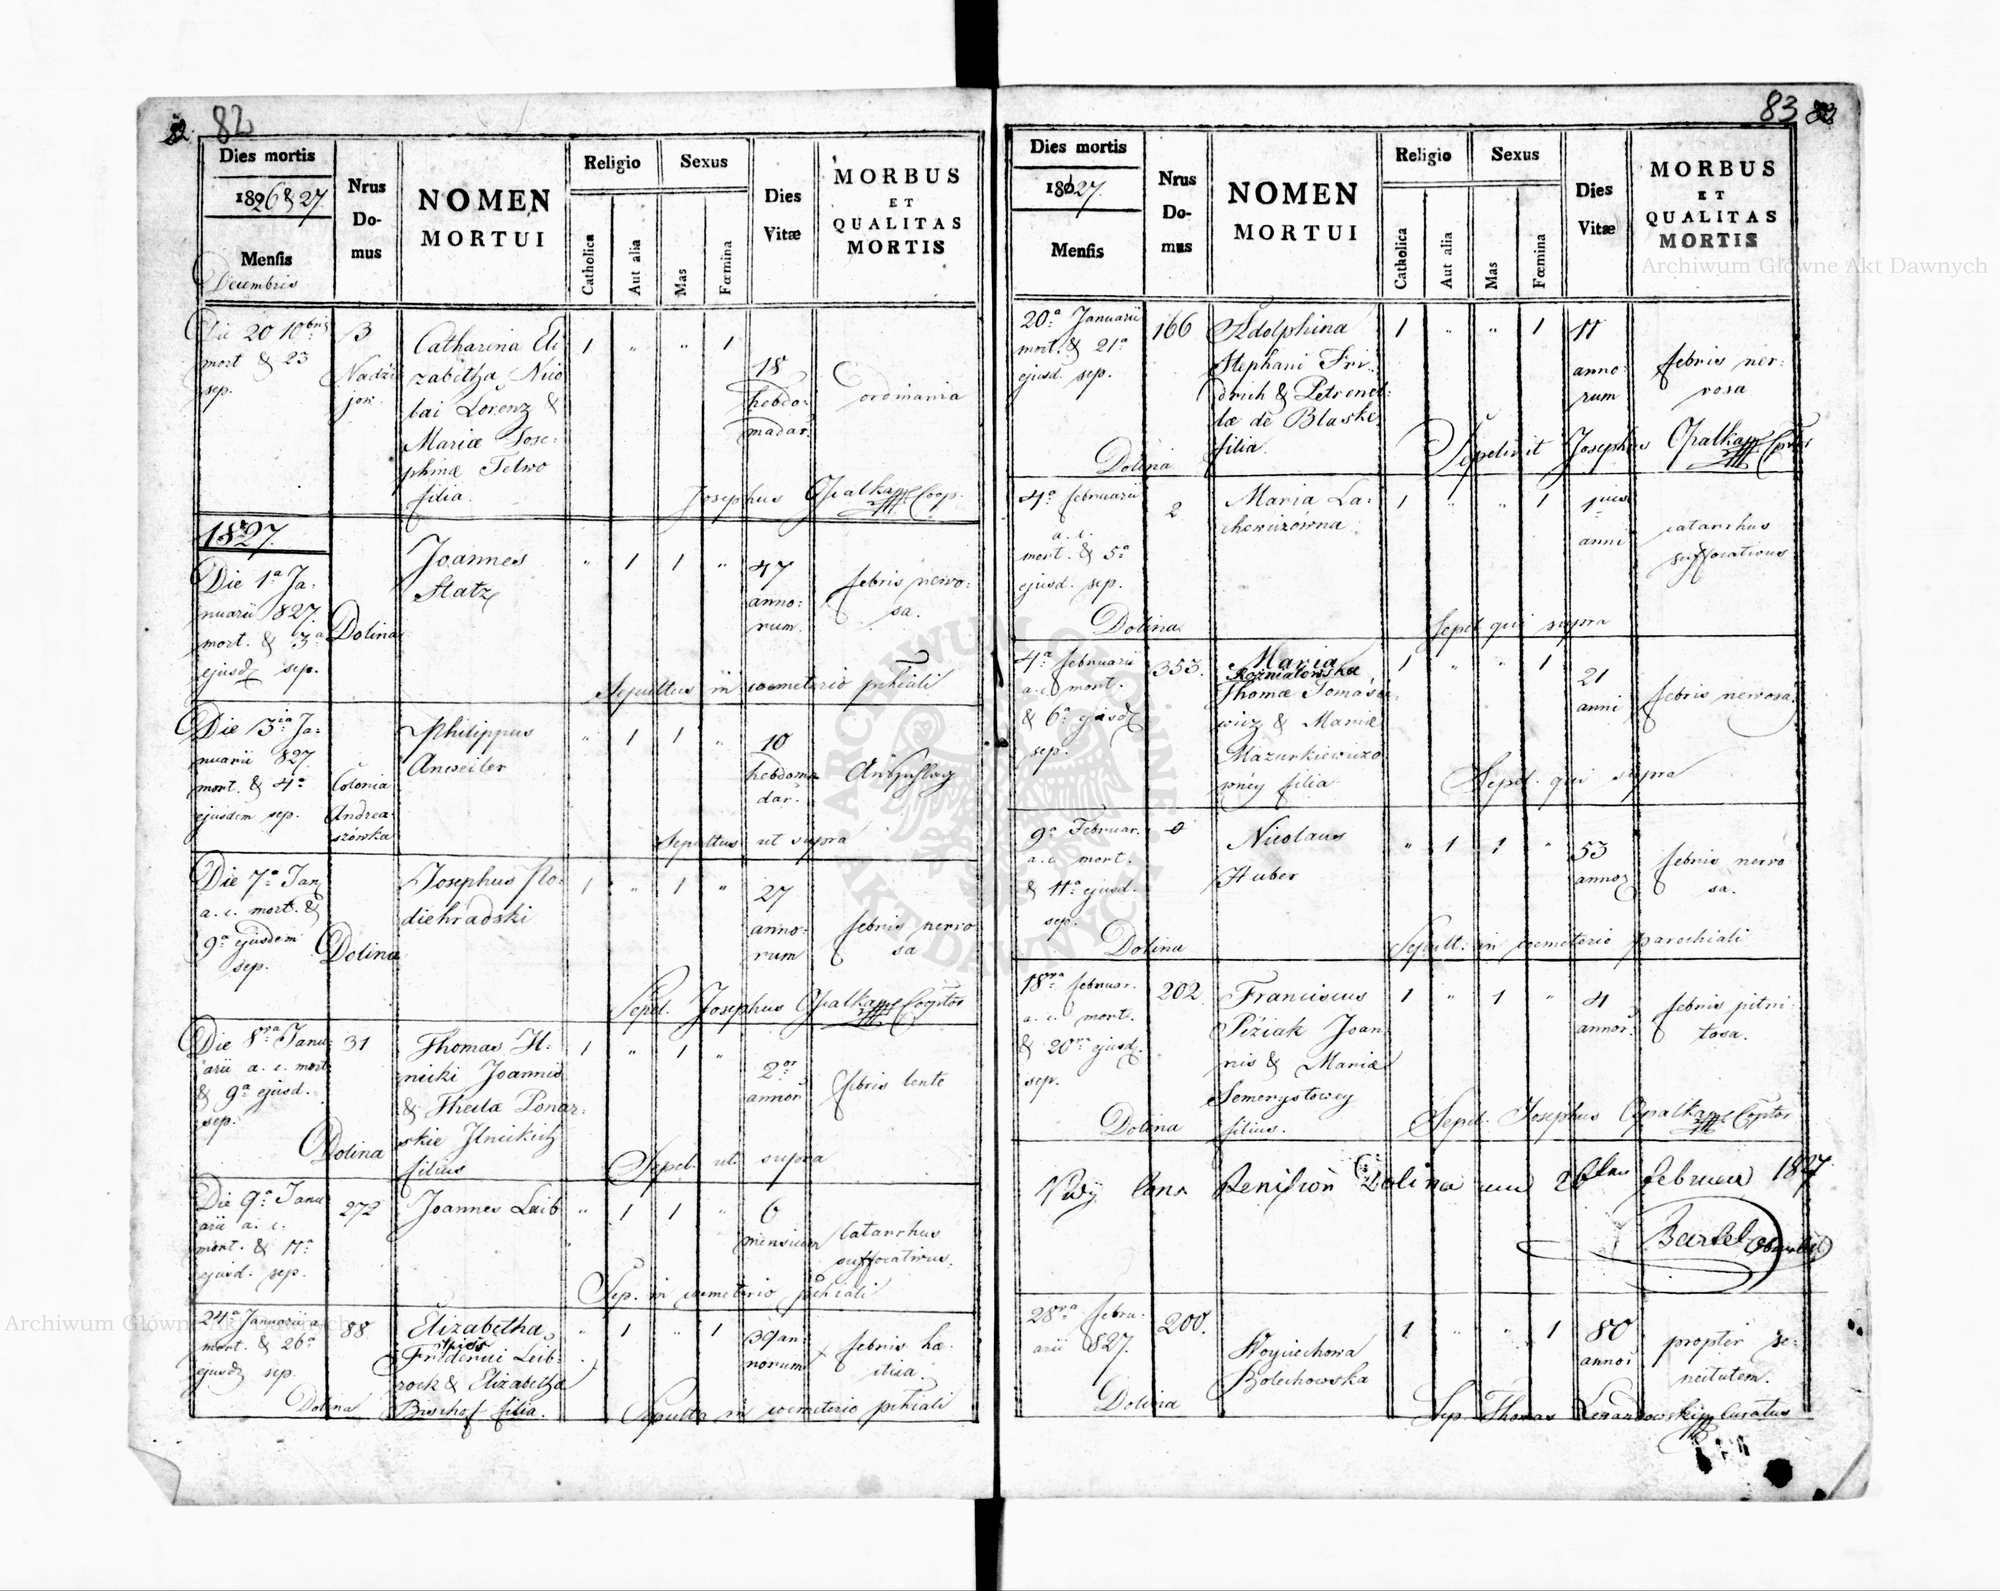 82
Dies mortis
1826 & 27.
Mensis
Decembris
Nrus
Do-
mus
NOMEN
MORTUI
Religio
Catholica
Aut alia
Sexus
Mas
Fœmina
Dies
Vitæ
MORBUS
ET
QUALITAS
MORTIS
Die 20 10bris
mort & 23
sep.
3
Catharina Eli
zabetha, Nico
lai Lorenz &
Mariæ Jose-
phinæ
filia.
1 " " 1
18
hebdo-
madar.
Josephus Opalka Coop.
1827.
Die 1ª Ja-
nuarii 827.
mort. & 3ª
ejusd sep.
Dolina
Joannes
Statz
" 1 1 "
47
anno-
rum.
febris nervo-
sa.
Sepultus in coemeterio pchiali
Die 3tia Ja-
nuarii 827.
mort. & 4ª
ejusdem sep.
Colonia
Andrea-
szówka
Philippus
Anweiler
" 1 1 "
10
hebdoma
dar.
Sepultus ut supra
Die 7ª Jan
a. c. mort. &
9ª ejusdem
sep.
Dolina
Josephus Flo-
diehradski
1 " 1 "
27
anno-
rum
febris nervo
sa
Sepel. Josephus Opalka Cooptor
Die 8va Janu-
arii a. c. mort
& 9ª ejusd.
sep.
Dolina
31
Thomas Il-
nicki Joannis
& Theclæ Ponar-
skie Ilnickich
filius
1 " 1 "
2or
annor
febris lenta
Sepel. ut supra
Die 9ª Janu
arii a. c.
mort. & 11ª
ejusd. sep.
272
Joannes Leib
" 1 1 "
6
mensium
Catarrhus
suffocativus.
Sep. in coemeterio pchiali
24ª Januarii a.
mort. & 26ª
ejusd sep.
Dolina
88
Elizabetha
Friderici Leib-
rock & Elizabetha
Bischof filia.
" 1 " 1
39 an
norum
febris he-
ctica.
Sepulta in coemeterio pchiali
83
Dies mortis
1827.
Mensis
Nrus
Do-
mus
NOMEN
MORTUI
Religio
Catholica
Aut alia
Sexus
Mas
Fœmina
Dies
Vitæ
MORBUS
ET
QUALITAS
MORTIS
20ª Januarii
mort. & 21ª
ejusd. sep.
Dolina
166
Adolphina
Stephani Fri-
drich & Petronel-
læ de Blaske
filia.
1 " " 1
11
anno-
rum
febris ner-
vosa
Sepelivit Josephus Opalka Cptor
4ª februarii
a. c.
mort. & 5ª
ejusd. sep.
Dolina
2
Maria La-
chowiczówna
1 " " 1
1
anni
catarrhus
suffocativus
Sepel qui supra
4ª februarii
a. c. mort.
& 6ª ejusd
sep.
353.
Maria
Rozniatowska
Thomæ Tomaśe-
wicz & Mariæ
Mazurkiewiczo
wney filia
1 " " 1
21
anni
febris nervosa
Sepel. qui supra
9ª Februar.
a. c. mort.
& 11ª ejusd.
sep.
Dolina
0
Nicolaus
Huber
" 1 1 "
53
annor
febris nervo
sa.
Sepult. in coemeterio parochiali
18va februar.
a. c. mort.
& 20ma ejusd.
sep.
Dolina
202.
Franciscus
Piziak Joan-
nis & Mariæ
Semerystowey
filius.
1 " 1 "
4
annor.
febris pitui-
tosa.
Sepel. Josephus Opalka Cooptor
Dolina 26ten februar 1827
Bartel
28va febru-
arii 827.
Dolina
200.
Woyciechowa
Bolechowska
1 " " 1
80
annor
propter se-
nectutem.
Sep. Thomas Lewandowski Curatus
Archiwum Główne Akt Dawnych
Archiwum Główne Akt Dawnych
ARCHIWUM GŁÓWNE AKT DAWNYCH